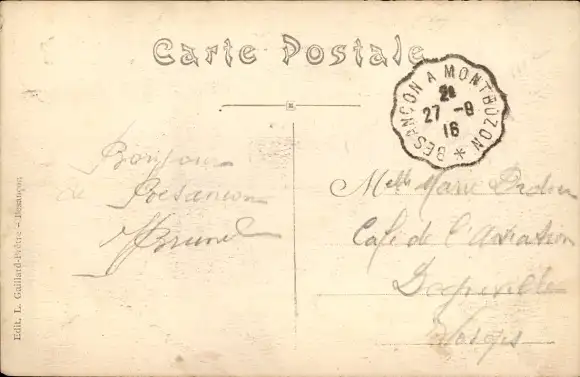 Carte Postale
BESANÇON A MONTBOZON *
27 -8
16
Bonjour
de Besancon
Brunel
Melle Marie
Café de l'Aviation
Vosges
Edit. L. Gaillard-Prêtre - Besançon